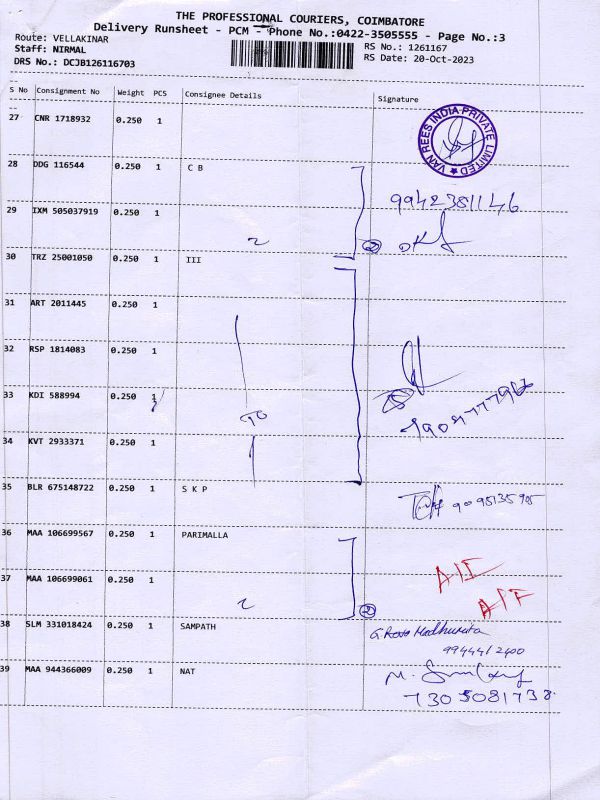 THE PROFESSIONAL COURIERS, COIMBATORE
Delivery Runsheet - PCM - Phone No.:0422-3505555 - Page No.:3
Route: VELLAKINAR
Staff: NIRMAL
DRS No.: DCJB126116703
RS No.: 1261167
RS Date: 20-Oct-2023
S No Consignment No Weight PCS Consignee Details Signature
27 CNR 1718932 0.250 1
VAN REES INDIA PRIVATE LIMITED
28 DDG 116544 0.250 1 C B
9942381146
29 IXM 505037919 0.250 1
2
30 TRZ 25001050 0.250 1 III
31 ART 2011445 0.250 1
32 RSP 1814083 0.250 1
33 KDI 588994 0.250 1
34 KVT 2933371 0.250 1
35 BLR 675148722 0.250 1 S K P
36 MAA 106699567 0.250 1 PARIMALLA
37 MAA 106699061 0.250 1
2
38 SLM 331018424 0.250 1 SAMPATH
9944412400
39 MAA 944366009 0.250 1 NAT
7305081738